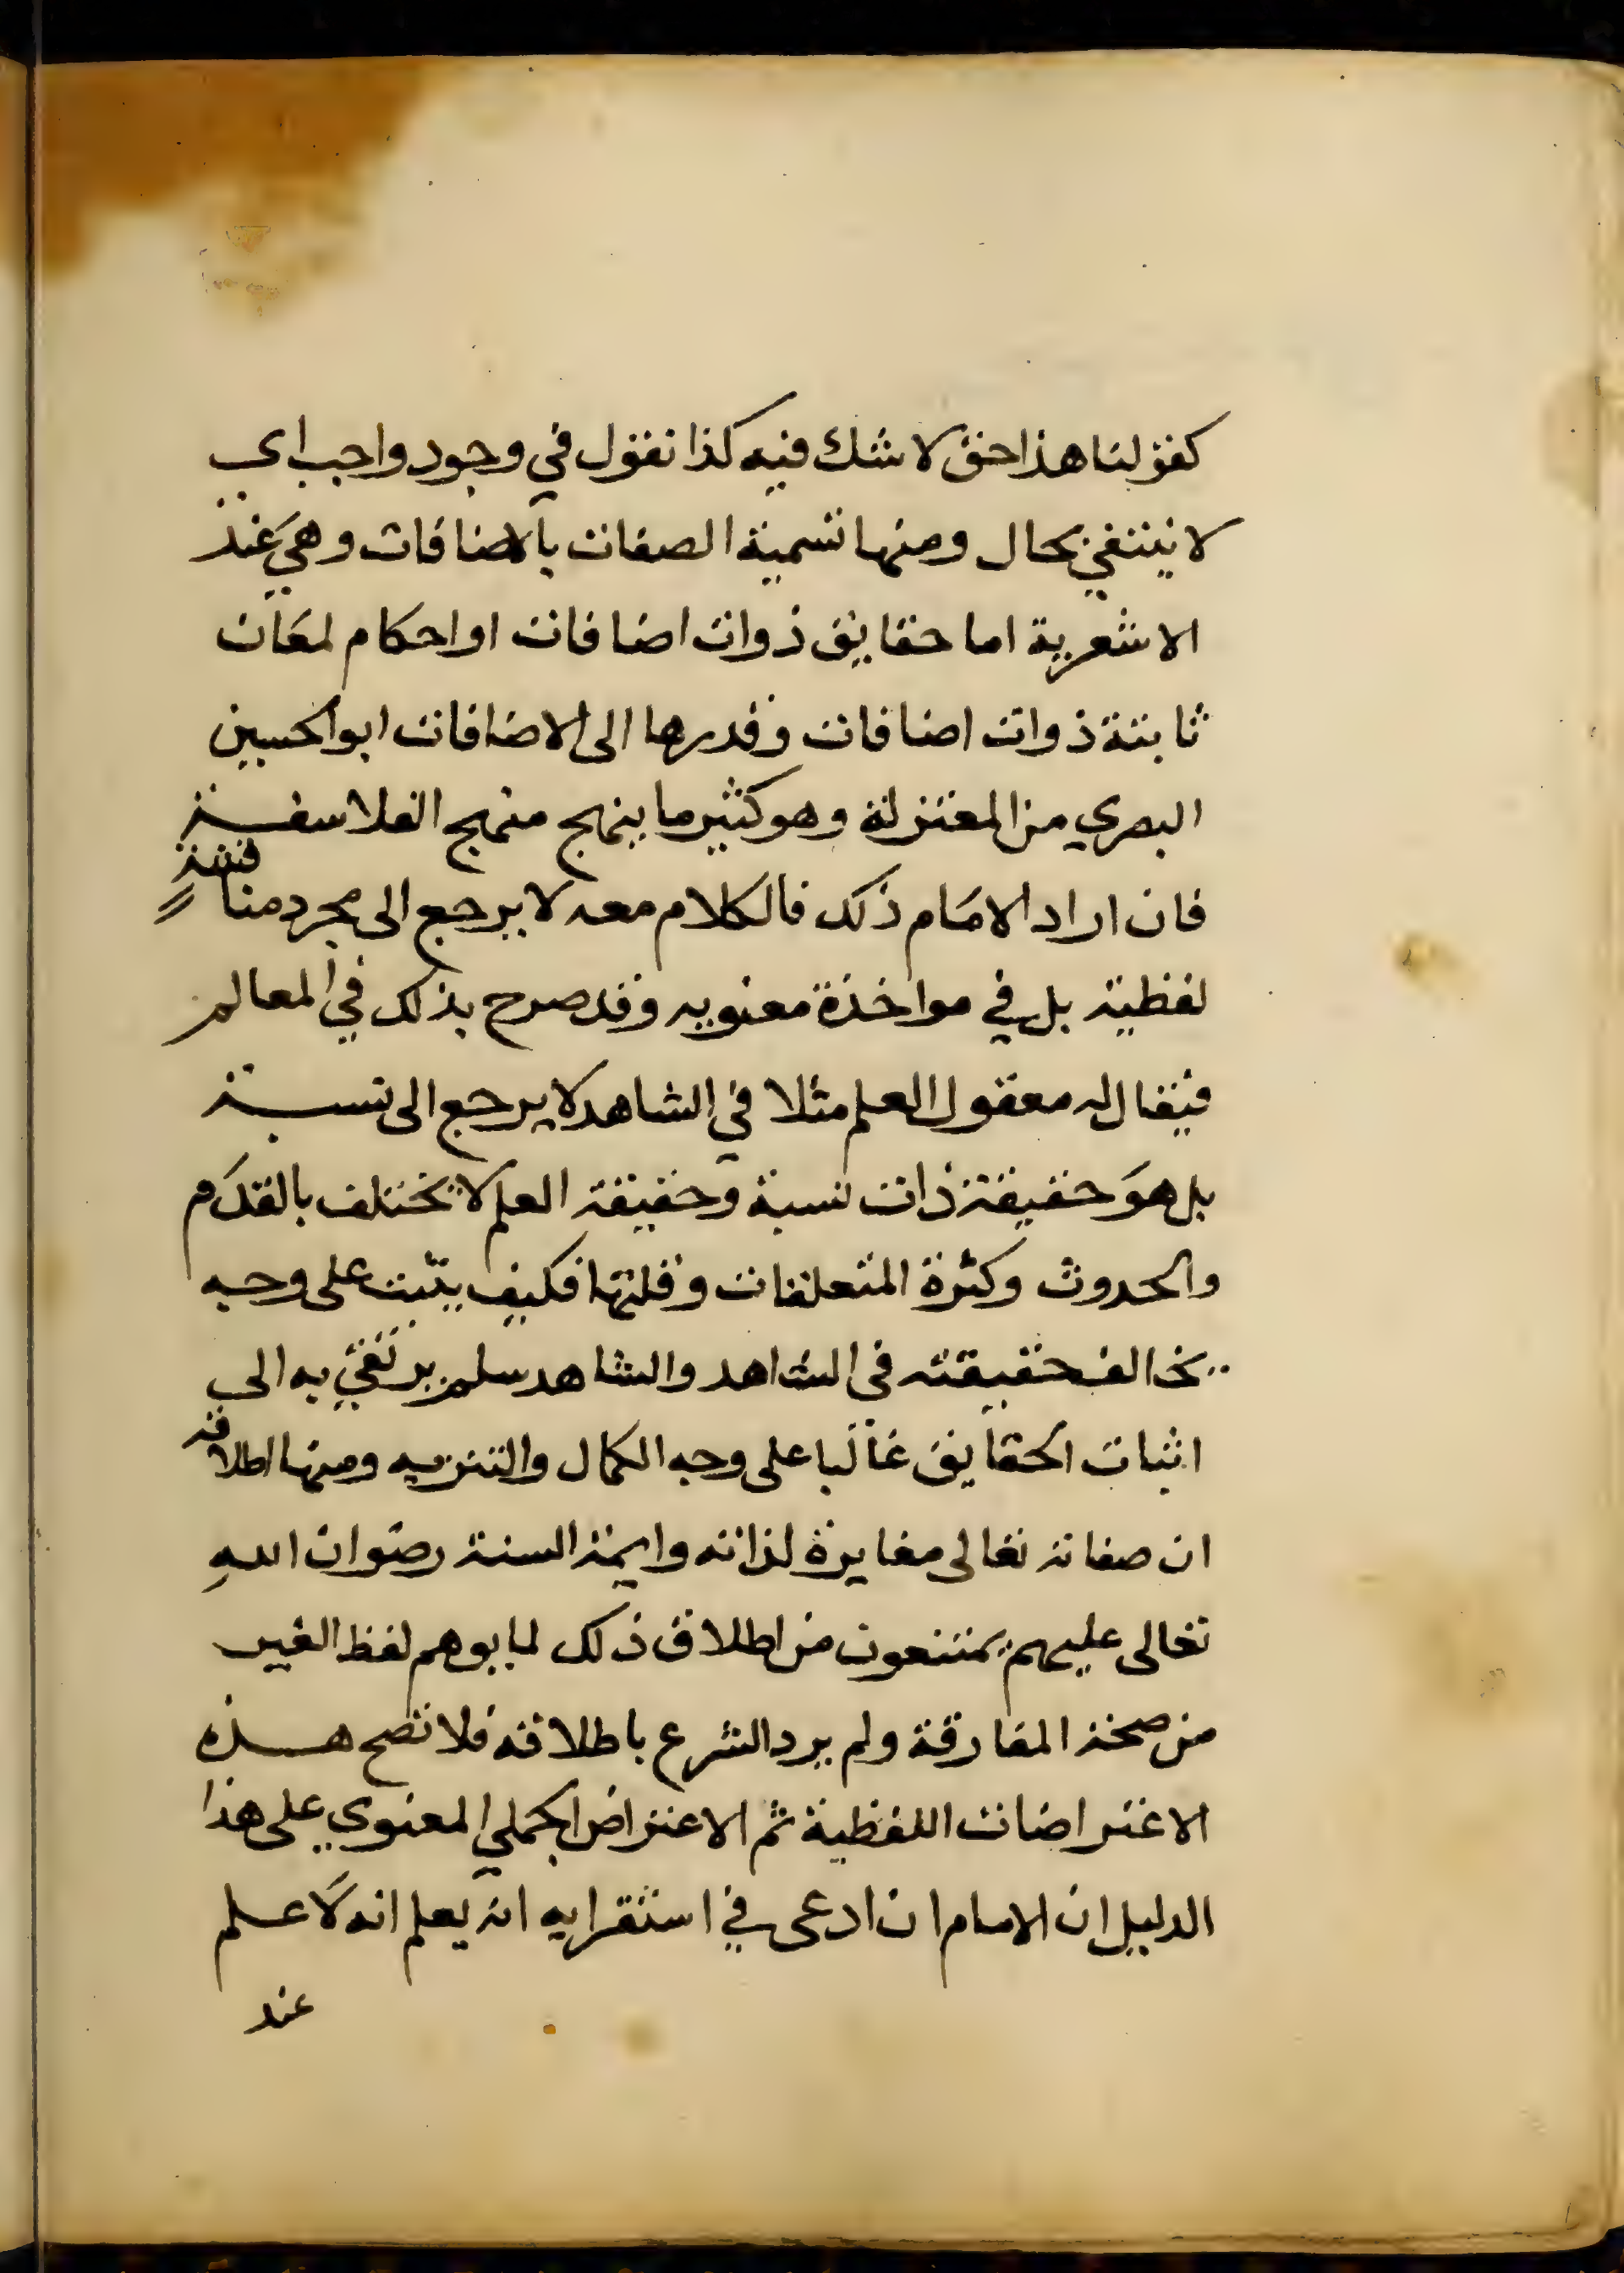 كقولنا هذا حق لا شك فيه كذا نقول في وجود واجب اي
لا ينتفي بحال ومنها تسمية الصفات بالاضافات وهي عند
الاشعرية اما حقايق ذوات اضافات او احكام لمعان
ثابتة ذوات اضافات وقد رها الى الاضافات ابو الحسين
البصري من المعتزلة وهو كثير ما ينهج منهج الفلاسفة
فان اراد الامام ذلك فالكلام معه لا يرجع الى مجرد مناقشة
لفظية بل في مواخذة معنويه وقد صرح بذلك في المعالم
فيقال له معقول العلم مثلا في الشاهد لا يرجع الى نسبة
بل هو حقيقة ذات نسبة وحقيقة العلم لا تختلف بالقدم
والحدوث وكثرة المتعلقات وقلتها فكيف يثبت على وجه
يخالف حقيقته في الشاهد والشاهد سلم يرتقي به الى
اثبات الحقايق غالبا على وجه الكمال والتنزيه ومنها اطلاقه
ان صفاته تعالى مغايرة لذاته وايمة السنة رضوان الله
تعالى عليهم يمتنعون من اطلاق ذلك لما يوهم لفظ الغير
من صحة المفارقة ولم يرد الشرع باطلاقه فلا تصح هذه
الاعتراضات اللفظية ثم الاعتراض الجملي المعنوي على هذا
الدليل ان الامام ان ادعى في استقرايه انه يعلم انه لا علم
عند